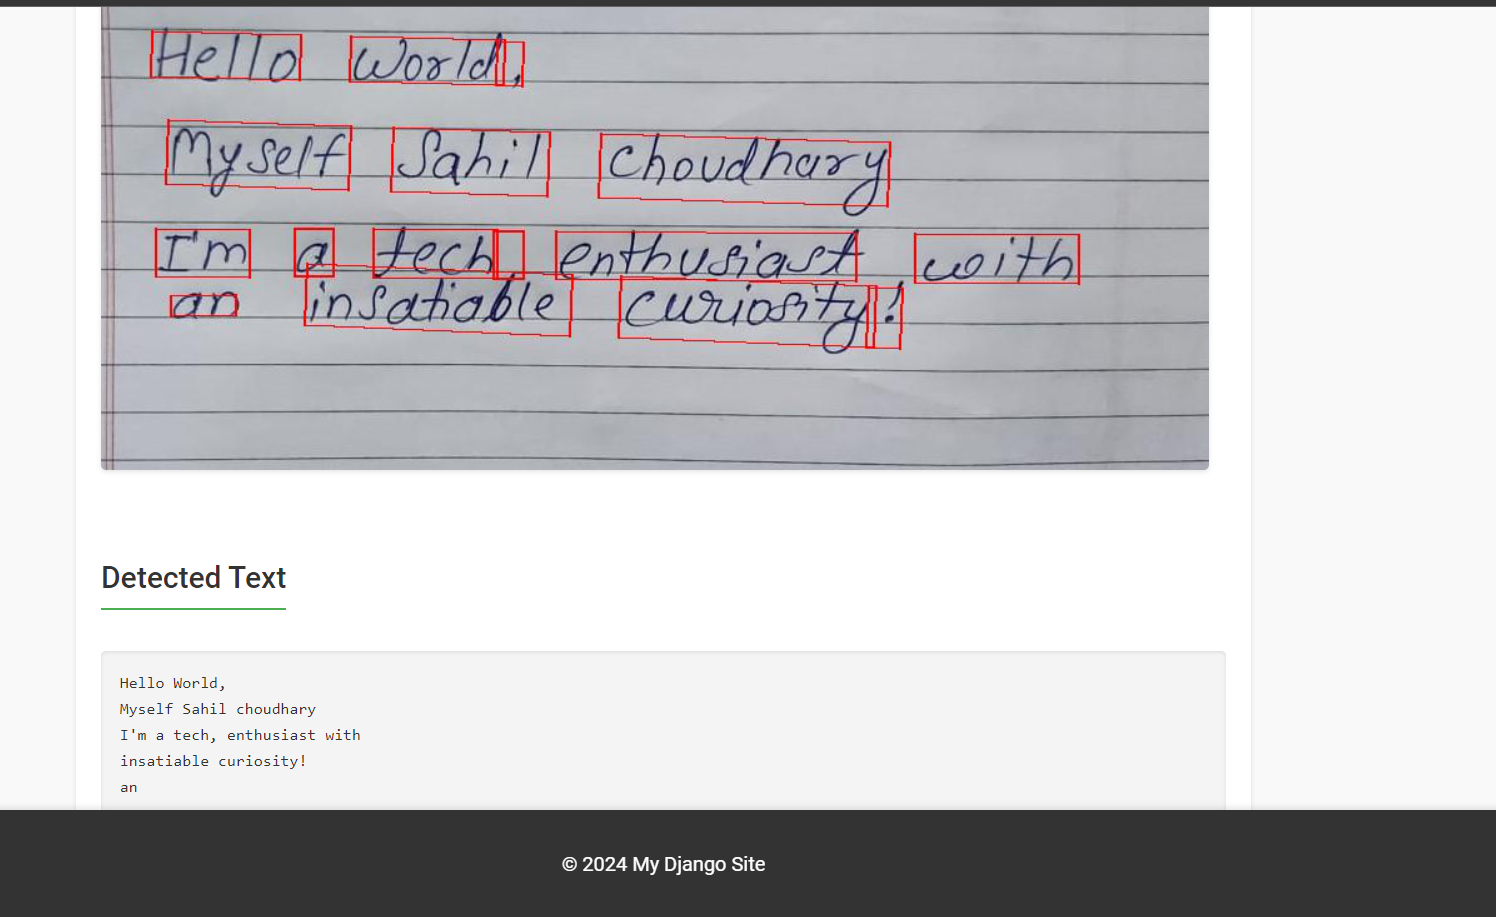 Hello World,
Myself Sahil Choudhary
I'm a tech enthusiast with
an insatiable curiosity!
Detected Text
Hello World,
Myself Sahil choudhary
I'm a tech, enthusiast with
insatiable curiosity!
an
© 2024 My Django Site